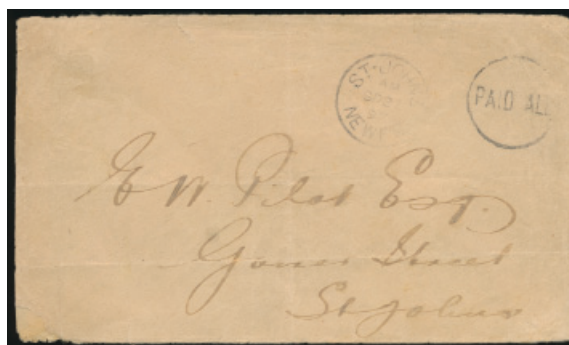 ST. JOHN'S
AM
NEWF
PAID ALL
E W. Pilot Esq.
Gower Street
St Johns